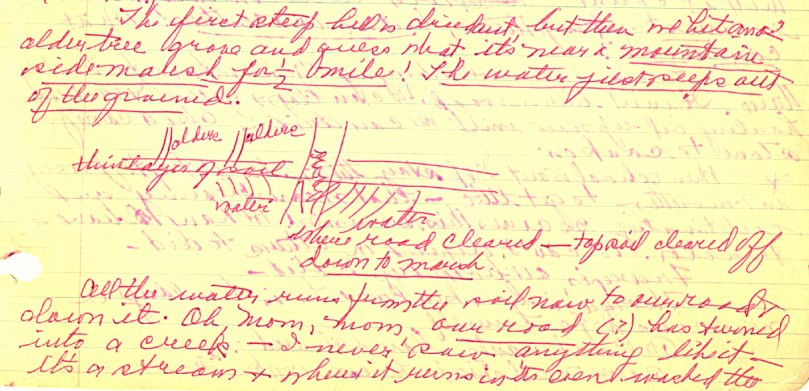 The first steep hill is dandy, but then we hit an
alder tree grove and guess what it's near a mountain
side marsh for ½ mile! The water just seeps out
of the ground.
alders alders
thin layer of soil
water
water
where road cleared — topsoil cleared off
down to marsh
All the water runs from the soil now to our road &
down it. Oh, Mom, Mom, our road (?) has turned
into a creek — I never saw anything like it —
It's a stream & where it runs in its even washed the